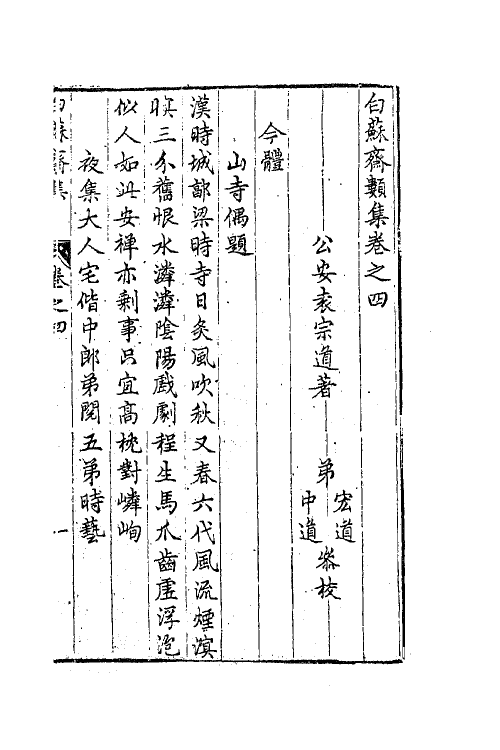 白蘇齋類集卷之四
公安袁宗道著 弟宏道中道叅校
今體
山寺偶題
漢時城郭梁時寺日炙風吹秋又春六代風流煙漠
漠三分舊恨水潾潾陰陽戲劇程生馬爪齒虛浮泡
似人如此安禪亦剩事只宜高枕對嶙峋
夜集大人宅偕中郎弟閱五弟時藝
白蘇齋集 卷之四 一